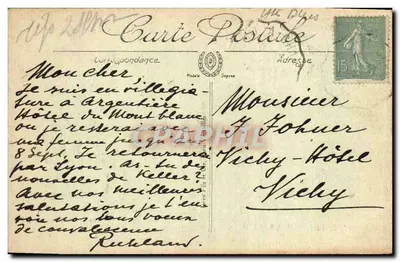 Carte Postale
Correspondance
Adresse
Mon cher,
Je suis en villégia-
ture à Argentière
Hôtel du Mont blanc
où je resterai avec
ma femme jusqu'au
8 Sept. Je retournerai
par Lyon. As-tu des
nouvelles de Keller?
Avec nos meilleures
salutations je t'en-
voie nos bons voeux
de convalescence
Monsieur
J. Johner
Vichy-Hôtel
Vichy
15